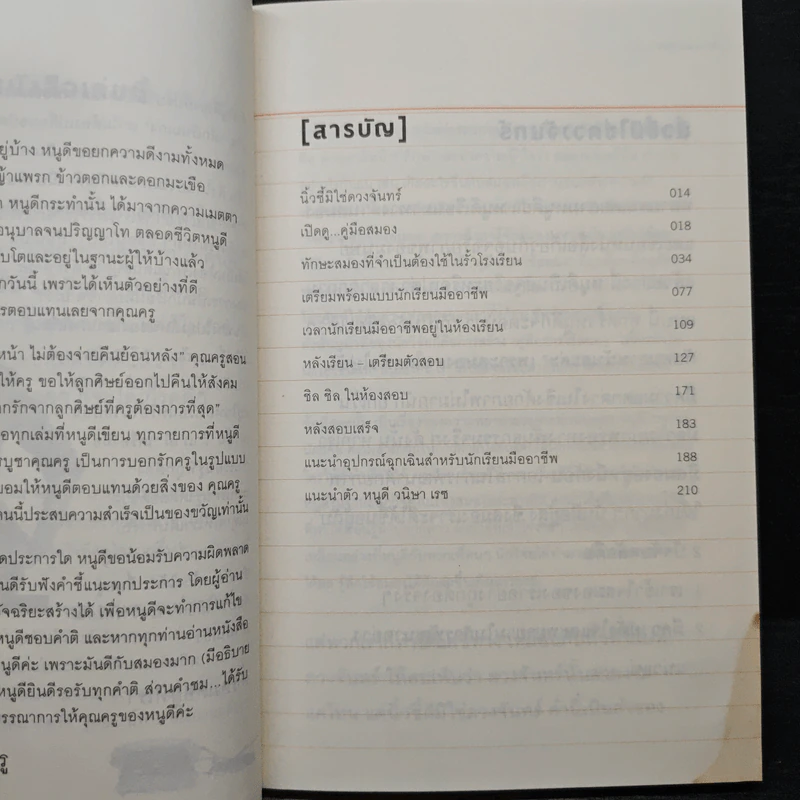 ยู่บ้าง หนูดีขอยกความดีงามทั้งหมด
ญ้าแพรก ข้าวตอกและดอกมะเขือ
หนูดีกระทำนั้น ได้มาจากความเมตตา
อนุบาลจนปริญญาโท ตลอดชีวิตหนูดี
บโตและอยู่ในฐานะผู้ให้บ้างแล้ว
กวันนี้ เพราะได้เห็นตัวอย่างที่ดี
รตอบแทนเลยจากคุณครู
หน้า ไม่ต้องจ่ายคืนย้อนหลัง” คุณครูสอน
ให้ครู ขอให้ลูกศิษย์ออกไปคืนให้สังคม
กรักจากลูกศิษย์ที่ครูต้องการที่สุด”
อทุกเล่มที่หนูดีเขียน ทุกรายการที่หนูดี
รบูชาคุณครู เป็นการบอกรักครูในรูปแบบ
ยอมให้หนูดีตอบแทนด้วยสิ่งของ คุณครู
คนนี้ประสบความสำเร็จเป็นของขวัญเท่านั้น
ดประการใด หนูดีขอน้อมรับความผิดพลาด
นดีรับฟังคำชี้แนะทุกประการ โดยผู้อ่าน
ัจฉริยะสร้างได้ เพื่อหนูดีจะทำการแก้ไข
หนูดีชอบคำติ และหากทุกท่านอ่านหนังสือ
หนูดีค่ะ เพราะมันดีกับสมองมาก (มีอธิบาย
หนูดียินดีรอรับทุกคำติ ส่วนคำชม...ได้รับ
รรณาการให้คุณครูของหนูดีค่ะ
รู
[สารบัญ]
นิ้วชี้มิใช่ดวงจันทร์ 014
เปิดดู...คู่มือสมอง 018
ทักษะสมองที่จำเป็นต้องใช้ในรั้วโรงเรียน 034
เตรียมพร้อมแบบนักเรียนมืออาชีพ 077
เวลานักเรียนมืออาชีพอยู่ในห้องเรียน 109
หลังเรียน – เตรียมตัวสอบ 127
ชิล ชิล ในห้องสอบ 171
หลังสอบเสร็จ 183
แนะนำอุปกรณ์ฉุกเฉินสำหรับนักเรียนมืออาชีพ 188
แนะนำตัว หนูดี วนิษา เรซ 210